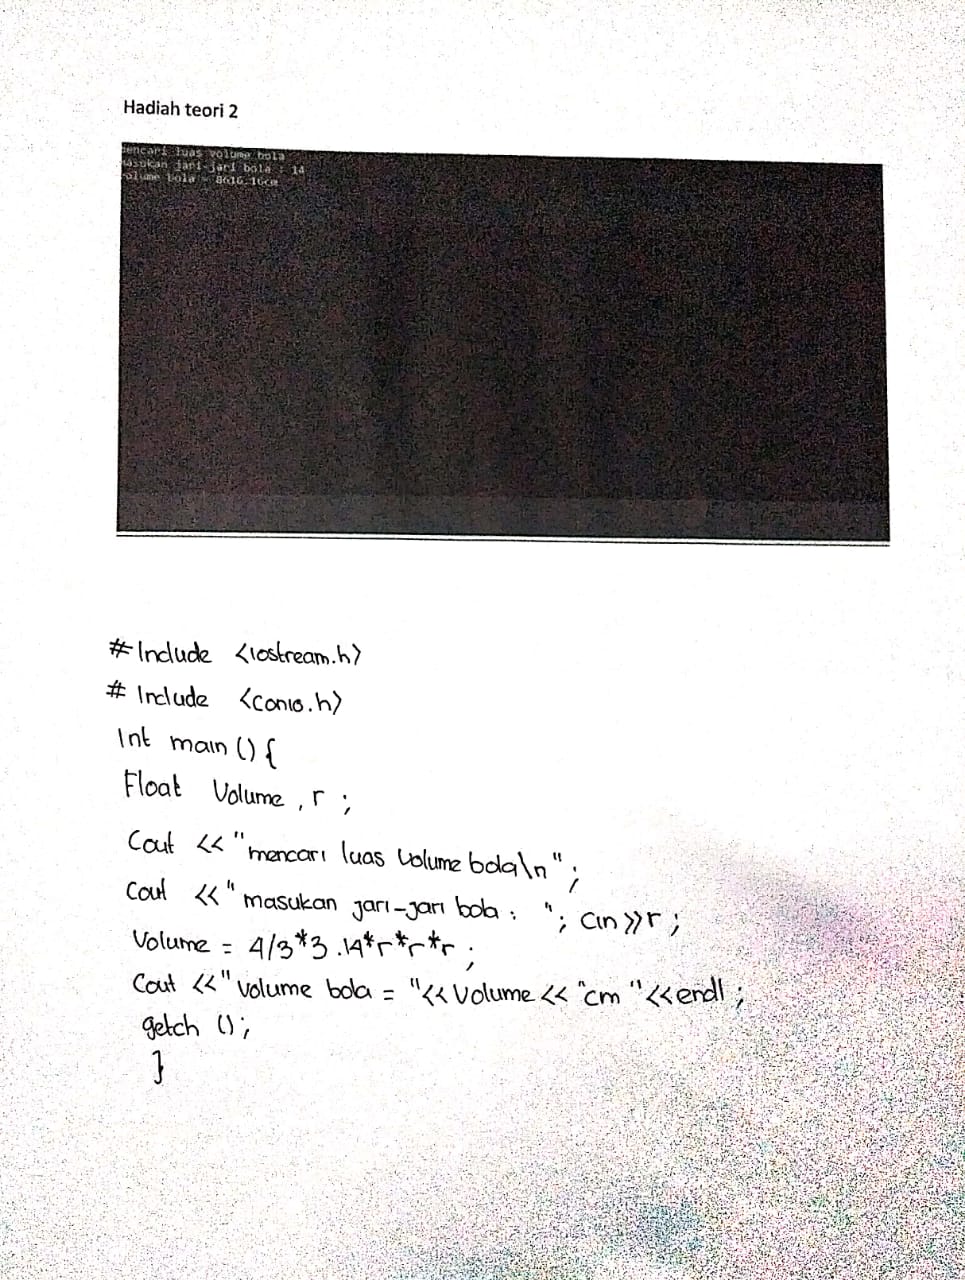 Hadiah teori 2
encari luas volume bola
asukan jari-jari bola : 14
olume bola = 8616.16cm
# Include <iostream.h>
# Include <conio.h>
Int main () {
Float Volume , r ;
Cout << "mencari luas Volume bola\n" ;
Cout << " masukan jari-jari bola : " ; Cin >> r ;
Volume = 4/3*3.14*r*r*r ;
Cout << " volume bola = " << Volume << "cm " << endl ;
getch () ;
}